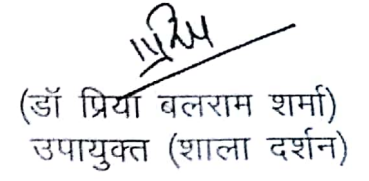 (डॉ प्रिया बलराम शर्मा)
उपायुक्त (शाला दर्शन)